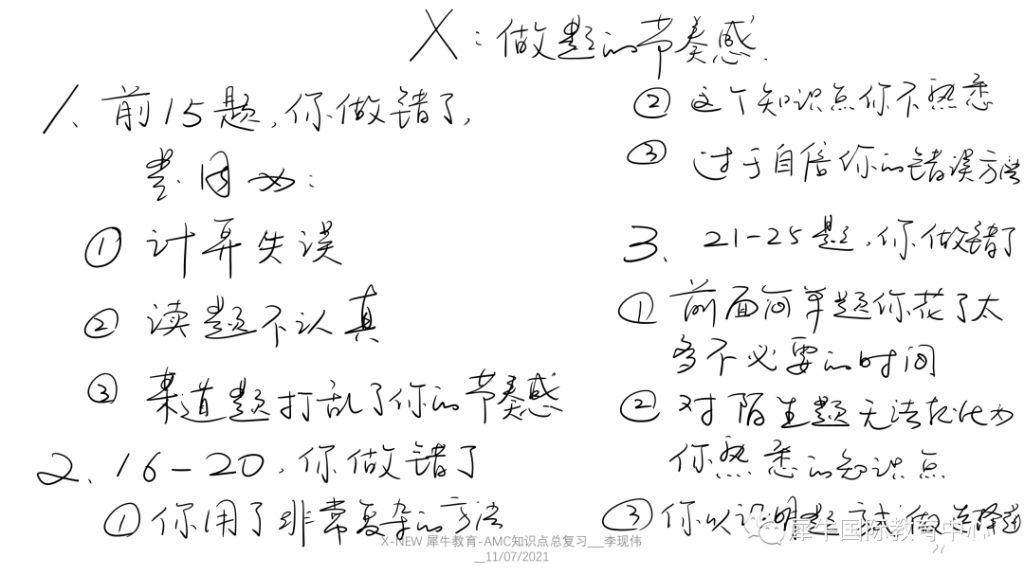 X：做题的节奏感.
1、前15题，你做错了，
是因为：
① 计算失误
② 读题不认真
③ 某道题打乱了你的节奏感
2、16-20，你做错了
① 你用了非常复杂的方法
② 这个知识点你不熟悉
③ 过于自信你的错误方法
3、21-25题，你做错了
① 前面简单题你花了太
多不必要的时间
② 对陌生题无法转化为
你熟悉的知识点
③ 你以证明题
犀牛国际教育中心
X-NEW 犀牛教育-AMC知识点总复习__李现伟
__11/07/2021